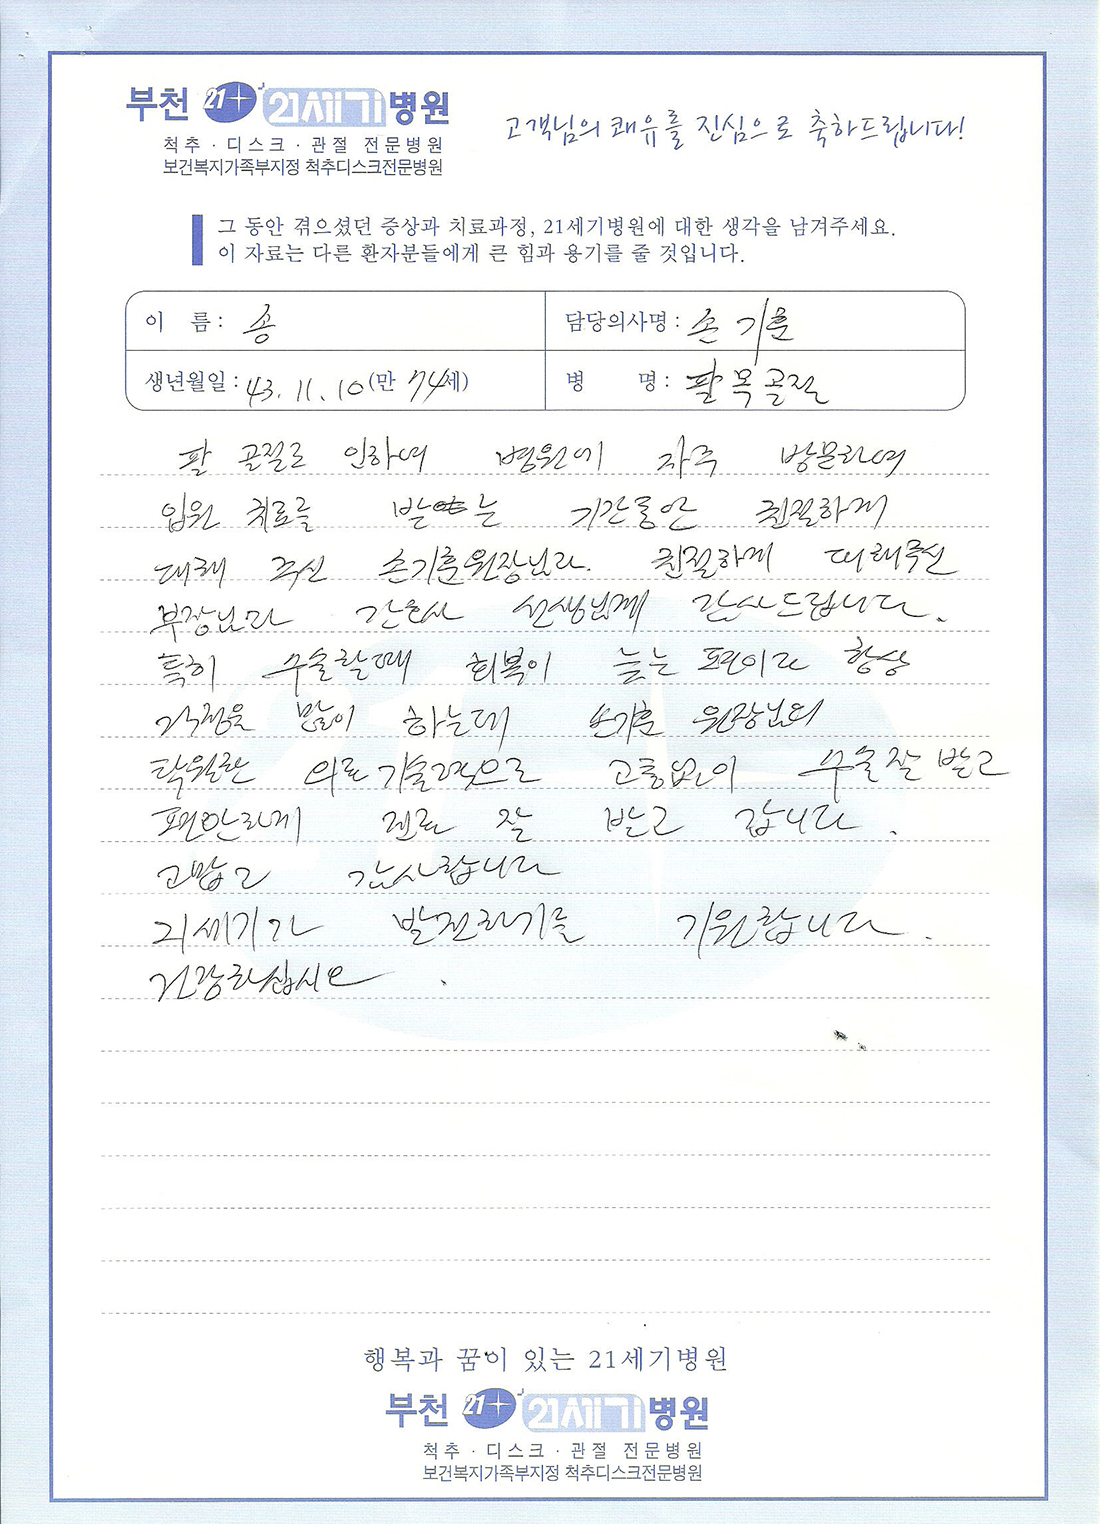 부천 21+ 21세기병원
척추 · 디스크 · 관절 전문병원
보건복지가족부지정 척추디스크전문병원
고객님의 쾌유를 진심으로 축하드립니다!
그 동안 겪으셨던 증상과 치료과정, 21세기병원에 대한 생각을 남겨주세요.
이 자료는 다른 환자분들에게 큰 힘과 용기를 줄 것입니다.
이 름 : 송
담당의사명 : 손기훈
생년월일 : 43. 11. 10 (만 74세)
병 명 : 팔목골절
팔 골절로 인하여 병원에 자주 방문하여
입원 치료를 받는 기간동안 친절하게
대해 주신 손기훈원장님과. 친절하게 대해주신
부장님과 간호사 선생님께 감사드립니다.
특히 수술할때 회복이 늦는 편이라 항상
걱정을 많이 하는데 손기훈 원장님의
탁월한 의료기술력으로 고통없이 수술잘 받고
편안하게 진료 잘 받고 갑니다.
고맙고 감사합니다
21세기가 발전하기를 기원합니다.
건강하십시요.
행복과 꿈이 있는 21세기병원
부천 21+ 21세기병원
척추 · 디스크 · 관절 전문병원
보건복지가족부지정 척추디스크전문병원